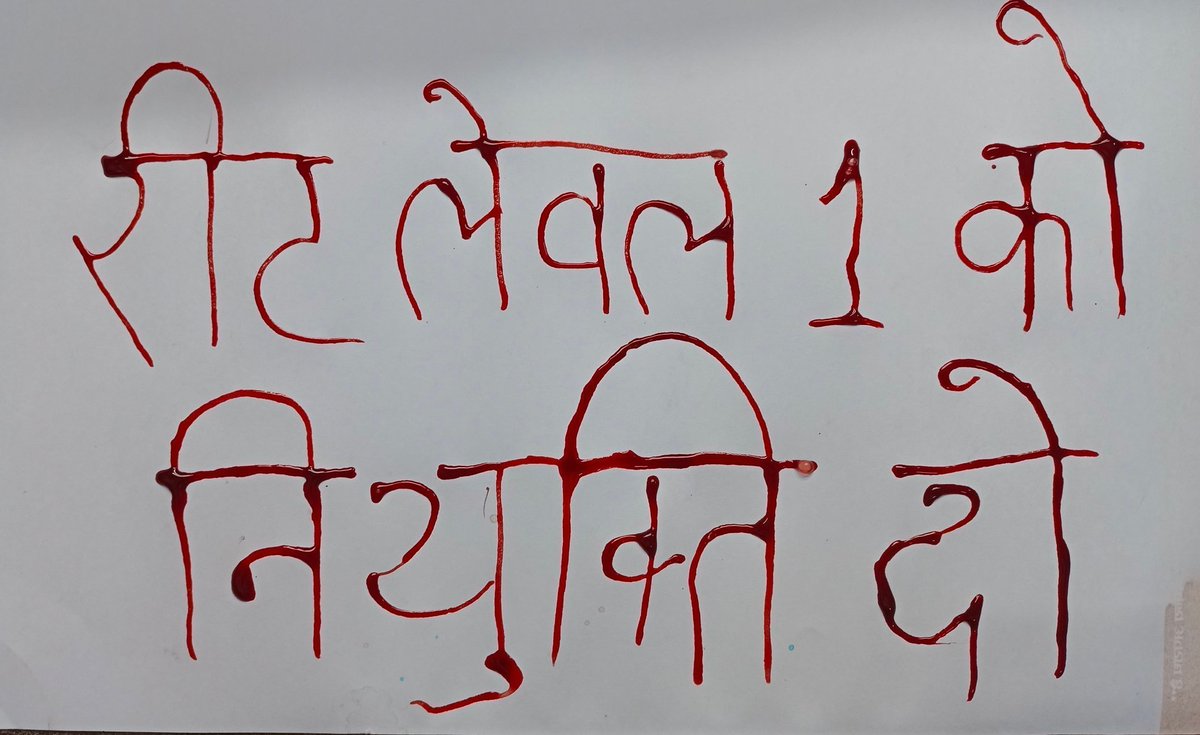 रीट लेवल 1 को
नियुक्ति दो